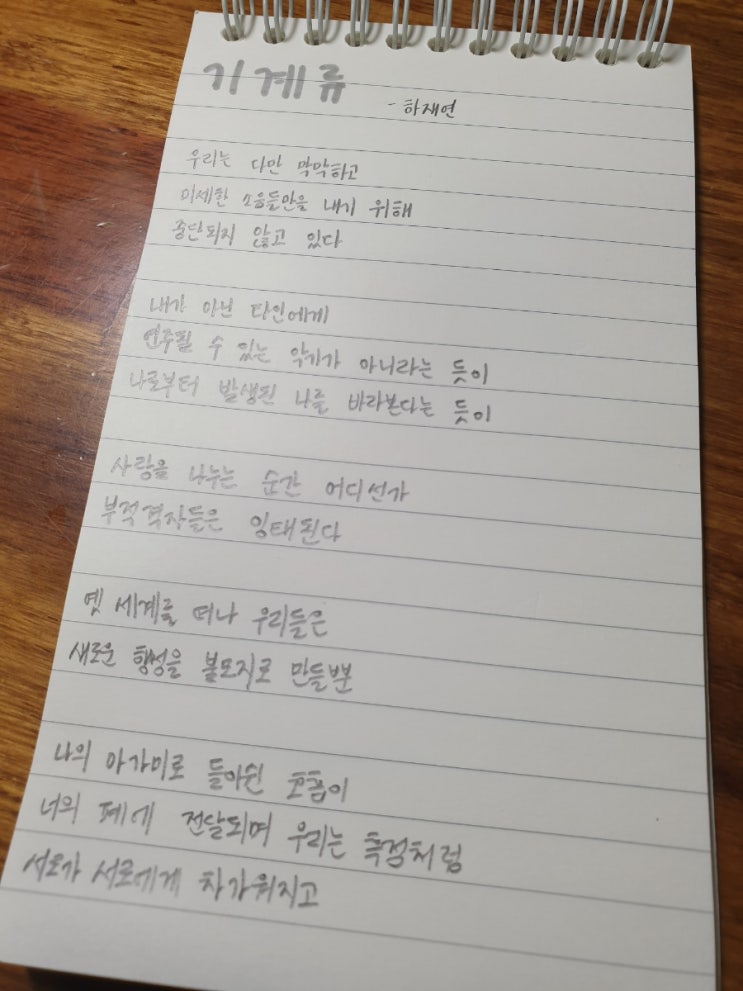 기계류
- 하재연
우리는 다만 막막하고
미세한 소음들만을 내기 위해
중단되지 않고 있다
내가 아닌 타인에게
연주될 수 있는 악기가 아니라는 듯이
나로부터 발생된 나를 바라본다는 듯이
사랑을 나누는 순간 어디선가
부적격자들은 잉태된다
옛 세계를 떠나 우리들은
새로운 행성을 불모지로 만들뿐
나의 아가미로 들이쉰 호흡이
너의 폐에 전달되며 우리는 측정처럼
서로가 서로에게 차가워지고